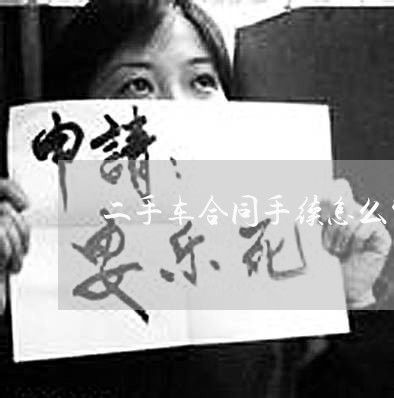 申請：
二手车合同手续怎么
安乐死